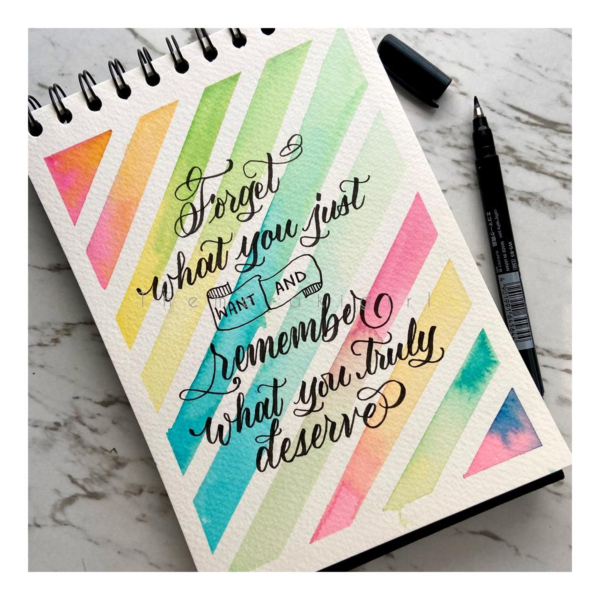 Forget
what you just
WANT AND
remember
what you truly
deserve